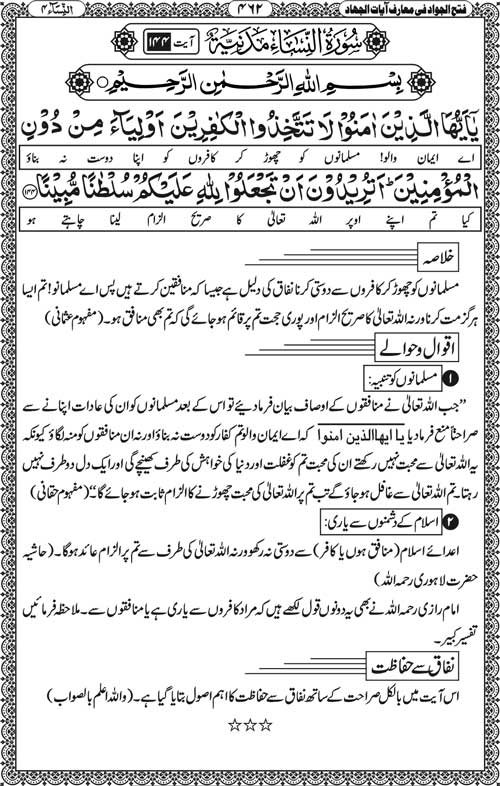 فتح الجواد فی معارف آیات الجهاد ۴۶۲ النساء ۴
سُورَةُ النِّسَاءِ مَدَنِيَّة آیت ۱۴۴
بِسْمِ اللهِ الرَّحْمٰنِ الرَّحِيْمِ
يٰٓاَيُّهَا الَّذِيْنَ اٰمَنُوْا لَا تَتَّخِذُوا الْكٰفِرِيْنَ اَوْلِيَآءَ مِنْ دُوْنِ
اے ایمان والو! مسلمانوں کو چھوڑ کر کافروں کو اپنا دوست نہ بناؤ
الْمُؤْمِنِيْنَ ؕ اَتُرِيْدُوْنَ اَنْ تَجْعَلُوْا لِلّٰهِ عَلَيْكُمْ سُلْطٰنًا مُّبِيْنًا ﴿۱۴۴﴾
کیا تم اپنے اوپر اللہ تعالیٰ کا صریح الزام لینا چاہتے ہو
خلاصہ
مسلمانوں کو چھوڑ کر کافروں سے دوستی کرنا نفاق کی دلیل ہے جیسا کہ منافقین کرتے ہیں پس اے مسلمانو! تم ایسا
ہرگز مت کرنا ورنہ اللہ تعالیٰ کا صریح الزام اور پوری حجت تم پر قائم ہو جائے گی کہ تم بھی منافق ہو۔ (مفہوم عثمانی)
اقوال و حوالے
❶ مسلمانوں کو تنبیہ:
”جب اللہ تعالیٰ نے منافقوں کے اوصاف بیان فرما دیئے تو اس کے بعد مسلمانوں کو ان کی عادات اپنانے سے
صراحتاً منع فرما دیا یا ایھا الذین امنوا کہ اے ایمان والو تم کفار کو دوست نہ بناؤ اور نہ ان منافقوں کو منہ لگاؤ کیونکہ
یہ اللہ تعالیٰ سے محبت نہیں رکھتے ان کی محبت تم کو غفلت اور دنیا کی خواہش کی طرف کھینچے گی اور ایک دل دو طرف نہیں
رہتا پھر تم اللہ تعالیٰ سے غافل ہو جاؤ گے تب تم پر اللہ تعالیٰ کی محبت چھوڑنے کا الزام ثابت ہو جائے گا“ (مفہوم حقانی)
❷ اسلام کے دشمنوں سے یاری:
اعدائے اسلام (منافق ہوں یا کافر) سے دوستی نہ رکھو ورنہ اللہ تعالیٰ کی طرف سے تم پر الزام عائد ہوگا۔ (حاشیہ
حضرت لاہوری رحمہ اللہ)
امام رازی رحمہ اللہ نے بھی یہ دونوں قول لکھے ہیں کہ مراد کافروں سے یاری ہے یا منافقوں سے۔ ملاحظہ فرمائیں
تفسیر کبیر۔
نفاق سے حفاظت
اس آیت میں بالکل صراحت کے ساتھ نفاق سے حفاظت کا اہم اصول بتایا گیا ہے۔ (واللہ اعلم بالصواب)
☆☆☆